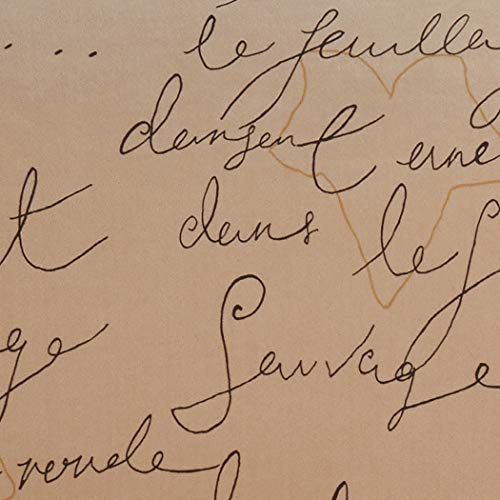 ... le feuilla
dansent une
t dans le
ge Sauvage
ronde